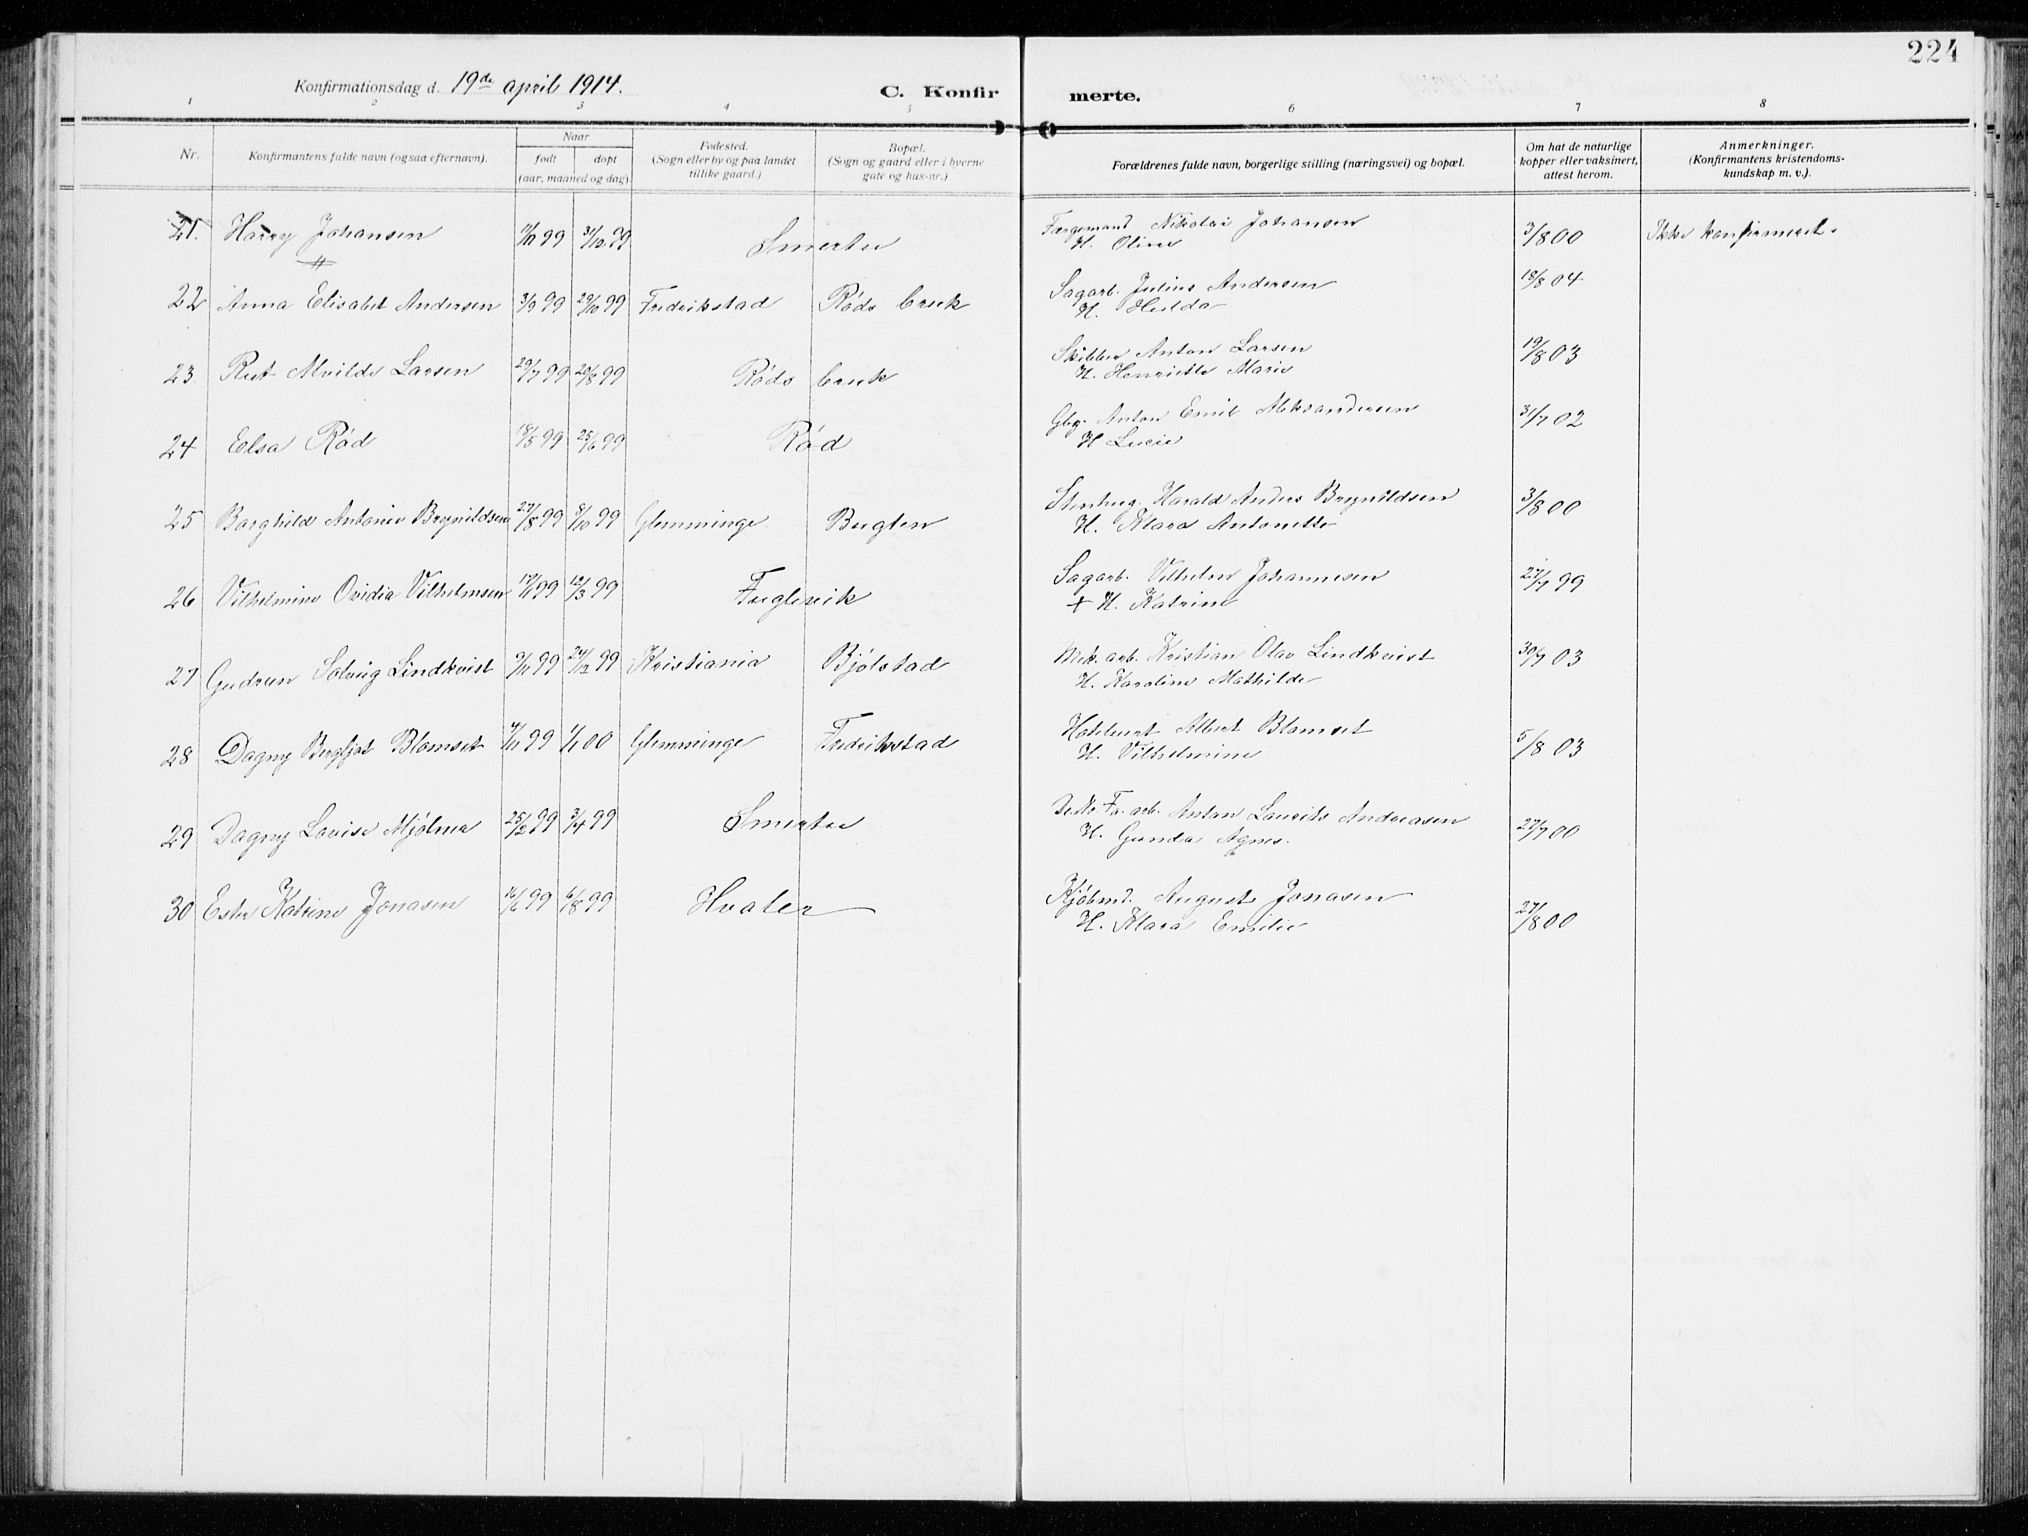 224
Konfirmationsdag d. 19de april 1914.
C. Konfirmerte.
1 2 3 4 5 6 7 8
Nr.
Konfirmantens fulde navn (ogsaa efternavn).
Naar
født
døpt
(aar, maaned og dag).
Fødested.
(Sogn eller by og paa landet
tillike gaard.)
Bopæl.
(Sogn og gaard eller i byerne
gate og hus-nr.)
Forældrenes fulde navn, borgerlige stilling (næringsvei) og bopæl.
Om hat de naturlige
kopper eller vaksinert,
attest herom.
Anmerkninger.
(Konfirmantens kristendoms-
kundskap m. v.).
21. Harry Johansen 99 31/12 99 Smertu Færgemand Nikolai Johansen 3/8 00 Ikke konfirmert.
H. Oline
22 Anna Elisabet Andersen 3/9 99 29/10 99 Fredrikstad Røds bruk Sagarb. Julius Andersen 18/8 04
H. Hulda
23 Rut Alvilde Larsen 29/7 99 20/8 99 Røds bruk Skibber Anton Larsen 19/8 03
H. Henriette Marie
24 Elsa Rød 18/5 99 25/6 99 Rød Gbr. Anton Emil Aleksandersen 31/7 02
H Lucie
25 Borghild Antonie Brynildsen 27/8 99 8/10 99 Glemminge Bugten Stenhug. Harald Anders Brynildsen 3/8 00
H. Klara Antonette
26 Vilhelmine Ovidia Vilhelmsen 99 12/3 99 Fuglevik Sagarb. Vilhelm Johannesen 27/7 99
+ H. Katrine
27 Gudrun Solveig Lindkvist 9/11 99 24/12 99 Kristiania Bjølstad Mek. arb. Kristian Olav Lindkvist 30/7 03
H. Karoline Mathilde
28 Dagny Bergljot Blomset 4/11 99 1/1 00 Glemminge Fredrikstad Albert Blomset 5/8 03
H. Vilhelmine
29 Dagny Lovise Mjølner 25/2 99 3/4 99 Smertu De No. Fa. arb. Anton Laurits Andreasen 27/7 00
H. Gunda Agnes.
30 Ester Katrine Jonasen 16/6 99 6/8 99 Hvaler Kjøbmd. August Jonasen 27/8 00
H. Klara Emilie